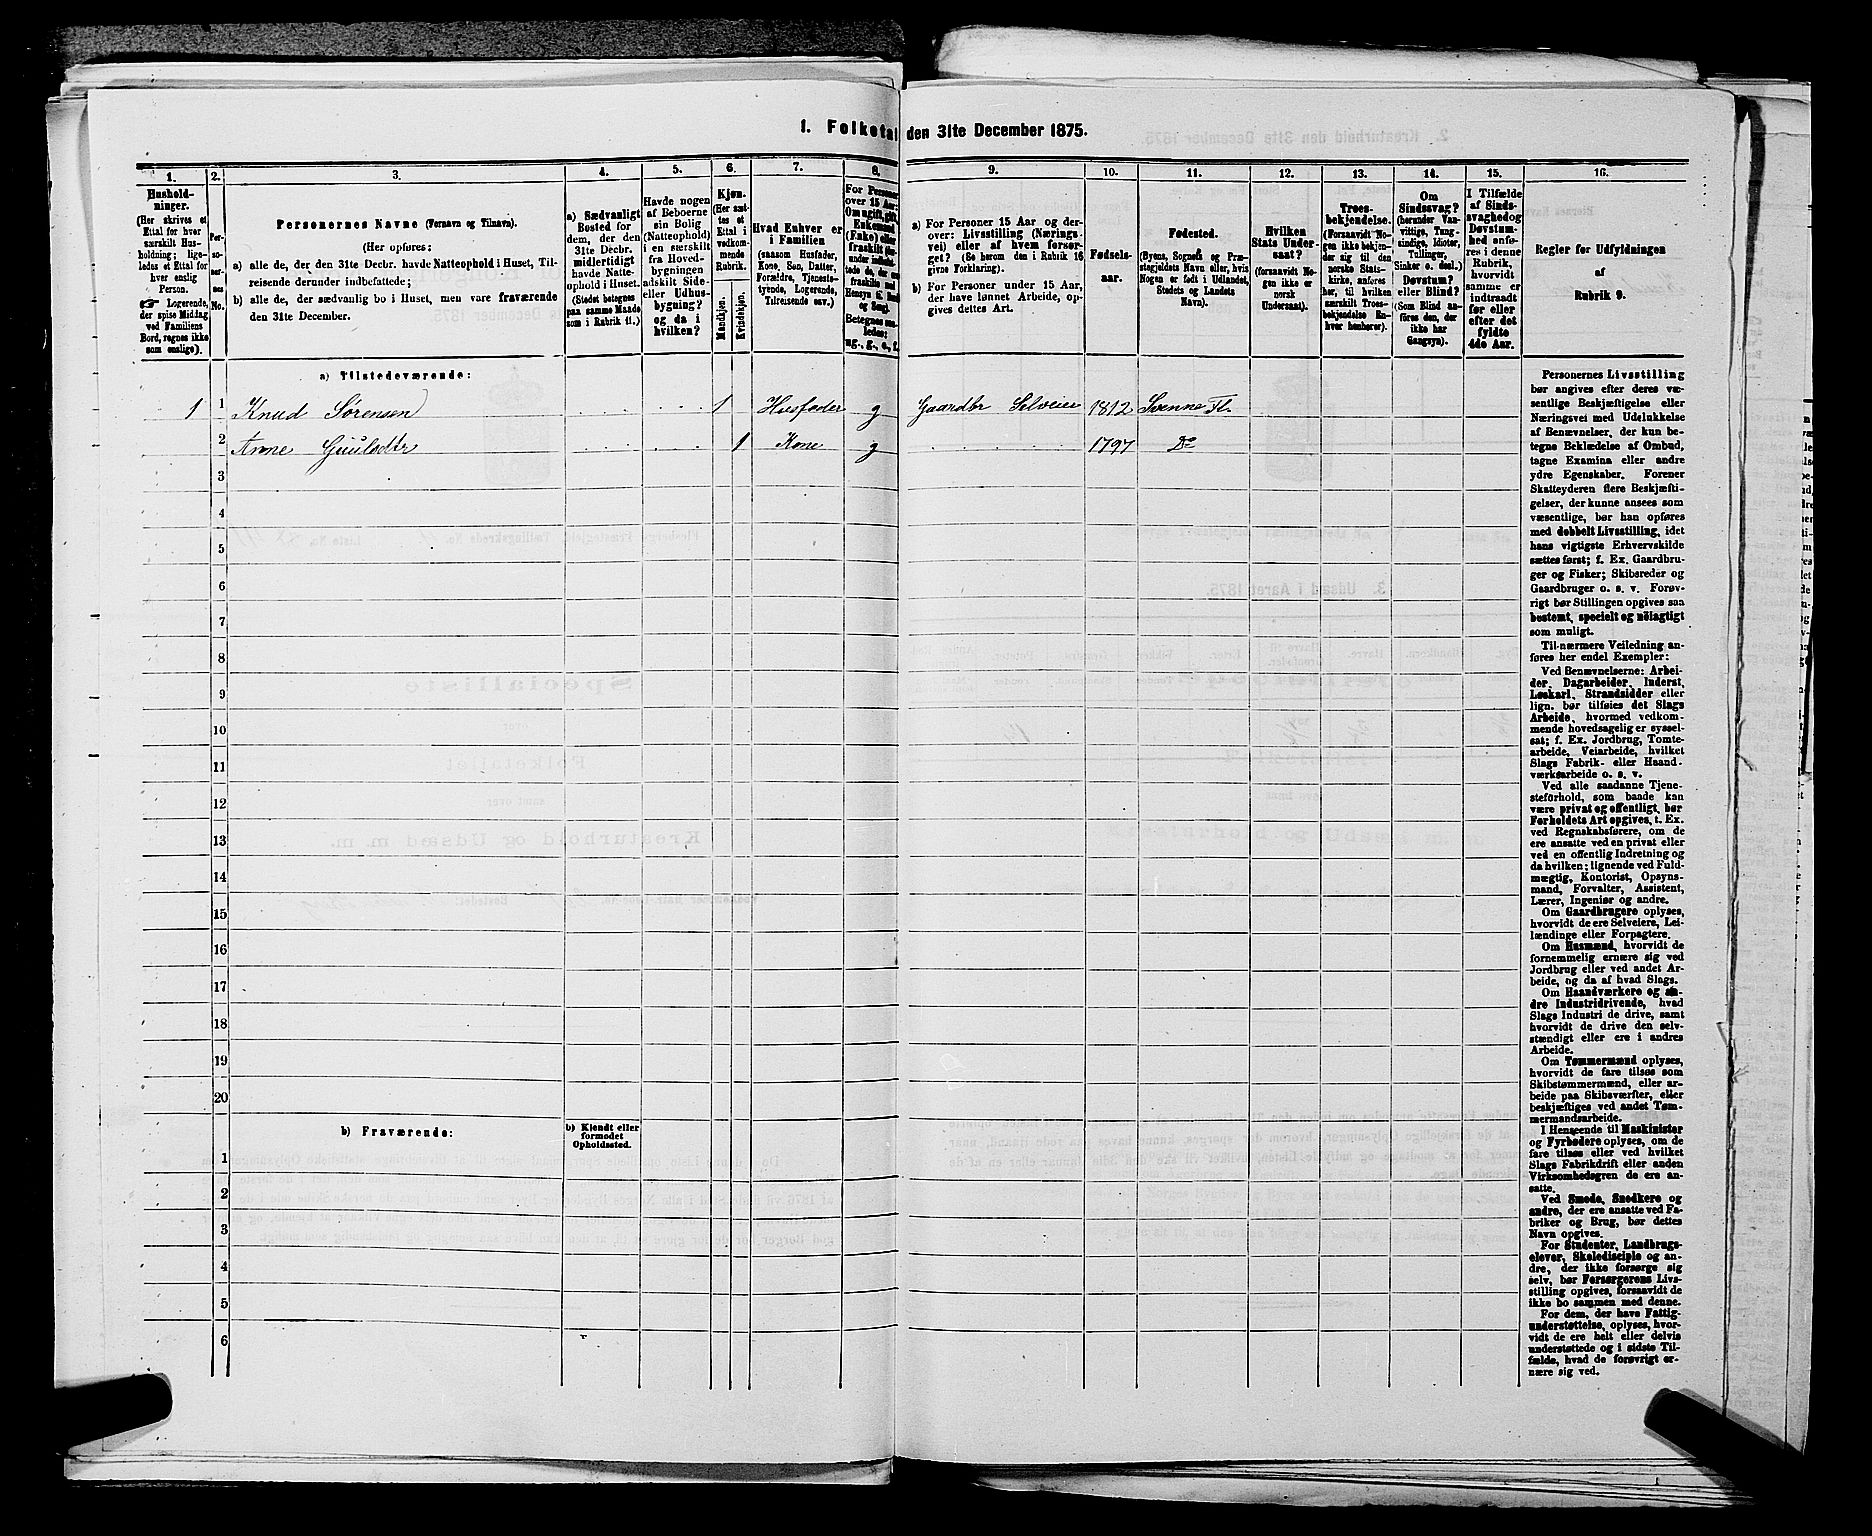 1. Folketal den 31te December 1875.
1.
2.
3.
4.
5.
6.
7.
8.
9.
10.
11.
12.
13.
14.
15.
16.
Hushold-
ninger.
(Her skrives et
Ettal for hver
særskilt Hus-
holdning; lige-
ledes et Ettal for
hver enslig
Person.
☞ Logerende,
der spise Middag
ved Familiens
Bord, regnes ikke
som enslige).
Per-
so-
ner-
nes
No.
Personernes Navne (Fornavn og Tilnavn).
(Her opføres:
a) alle de, der den 31te Decbr. havde Natteophold i Huset, Til-
reisende derunder indbefattede;
b) alle de, der sædvanlig bo i Huset, men vare fraværende
den 31te December.
a) Sædvanligt
Bosted for
dem, der den
31te Decbr.
midlertidigt
havde Natte-
ophold i Huset.
(Stedet betegnes
paa samme Maade
som i Rubrik 11.)
Havde nogen
af Beboerne
sin Bolig
(Natteophold)
i en særskilt
fra Hoved-
bygningen
adskilt Side-
eller Udhus-
bygning?
og da i
hvilken?
Kjøn.
(Her sæt-
tes et
Ettal i
vedkom-
mende
Rubrik.
Mandkjøn.
Kvindekjøn.
Hvad Enhver er
i Familien
(saasom Husfader,
Kone, Søn, Datter,
Forældre, Tjeneste-
tyende, Logerende,
Tilreisende osv.)
For Personer
over 15 Aar:
Om ugift, gift,
Enkemand
(Enke) eller
fraskilt
Betegnes saa-
ledes:
ug., g., e., f.
a) For Personer 15 Aar og der-
over: Livsstilling (Nærings-
vei) eller af hvem forsør-
get? (Se herom den i Rubrik 16
givne Forklaring).
b) For Personer under 15 Aar,
der have lønnet Arbeide, op-
gives dettes Art.
Fødsels-
aar.
Fødested.
(Byens, Sognets og Præ-
stegjeldets Navn eller, hvis
Nogen er født i Udlandet,
Stedets og Landets
Navn).
Hvilken
Stats Under-
saat?
(forsaavidt No-
gen ikke er
norsk
Undersaat).
Troes-
bekjendelse.
(Forsaavidt No-
gen ikke bekjen-
der sig til den
norske Stats-
kirke, anføres
her, til hvilken
særskilt Troes-
bekjendelse En-
hver henhører).
Om
Sindssvag?
(herunder Van-
vittige, Tung-
sindige, Idioter,
Tullinger,
Sinker o. desl.)
Døvstum?
eller Blind?
(Som Blind an-
føres den, der
ikke har
Gangsyn).
I Tilfælde
af Sinds-
svaghed og
Døvstum-
hed anfø-
res i denne
Rubrik,
hvorvidt
samme er
indtraadt
før eller
efter det
fyldte
4de Aar.
Regler for Udfyldningen
af
Rubrik 9.
a) Tilstedeværende:
1 1 Knud Sørensen 1 Husfader g Gaardbr Selveier 1812 Svenne Fl.
2 Anne Guulsdtr 1 Kone g 1797 Do
3
4
5
6
7
8
9
10
11
12
13
14
15
16
17
18
19
20
b) Fraværende:
b) Kjendt eller
formodet
Opholdssted.
1
2
3
4
5
6
Personernes Livsstilling
bør angives efter deres væ-
sentlige Beskjæftigelse eller
Næringsvei med Udelukkelse
af Benævnelser, der kun be-
tegne Beklædelse af Ombud,
tagne Examina eller andre
ydre Egenskaber. Forener
Skatteyderen flere Beskjæfti-
gelser, der kunne ansees som
væsentlige, bør han opføres
med dobbelt Livsstilling, idet
hans vigtigste Erhvervskilde
sættes først; f. Ex. Gaardbru-
ger og Fisker; Skibsreder og
Gaardbruger o. s. v. Forøv-
rigt bør Stillingen opgives saa
bestemt, specielt og nöiagtigt
som muligt.
Til nærmere Veiledning an-
føres her endel Exempler:
Ved Benævnelserne: Arbei-
der, Dagarbeider, Inderst,
Løskarl, Strandsidder eller
lign. bør tilføies det Slags
Arbeide, hvormed vedkom-
mende hovedsagelig er syssel-
sat; f. Ex. Jordbrug, Tomte-
arbeide, Veiarbeide, hvilket
Slags Fabrik- eller Haand-
værksarbeide o. s. v.
Ved alle saadanne Tjene-
steforhold, som baade kan
være privat og offentligt, bør
Forholdets Art opgives, t. Ex.
ved Regnskabsførere, om de
ere ansatte ved en privat eller
ved en offentlig Indretning og
da hvilken; lignende ved Fuld-
mægtig, Kontorist, Opsyns-
mand, Forvalter, Assistent,
Lærer, Ingeniør og andre.
Om Gaardbrugere oplyses,
hvorvidt de ere Selveiere, Lei-
lændinge eller Forpagtere.
Om Husmænd, hvorvidt de
fornemmelig ernære sig ved
Jordbrug eller ved andet Ar-
beide, og da af hvad Slags.
Om Haandværkere og an-
dre Industridrivende, hvad
Slags Industri de drive, samt
hvorvidt de drive den selv-
stændigt eller ere i andres
Arbeide.
Om Tømmermænd oplyses,
hvorvidt de fare tilsøs som
Skibstømmermænd, eller ar-
beide paa Skibsværfter, eller
beskjæftiges ved andet Tøm-
mermandsarbeide.
I Henseende til Maskinister
og Fyrbødere oplyses, om de
fare tilsøs eller ved hvilket
Slags Fabrikdrift eller anden
Virksomhedsgren de ere an-
satte.
Ved Smede, Snedkere og
andre, der ere ansatte ved Fa-
briker og Brug, bør dettes
Navn opgives.
For Studenter, Landbrugs-
elever, Skoledisciple og an-
dre, der ikke forsørge sig
selv, bør Forsørgerens Livs-
stilling opgives, forsaavidt de
ikke bo sammen med denne.
For dem, der have Fattig-
understøttelse, oplyses, hvor-
vidt de ere helt eller delvis
understøttede og i sidste Til-
fælde, hvad de forøvrigt er-
nære sig ved.